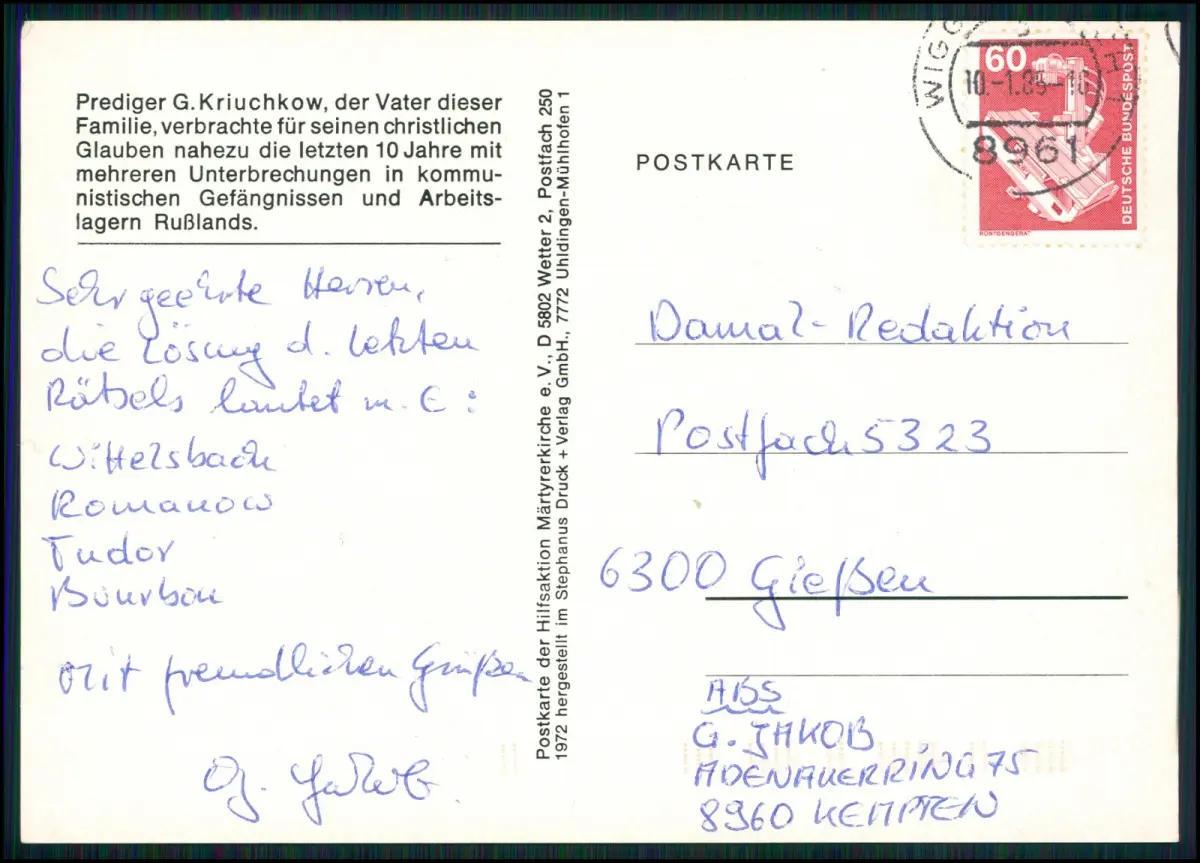 Prediger G. Kriuchkow, der Vater dieser
Familie, verbrachte für seinen christlichen
Glauben nahezu die letzten 10 Jahre mit
mehreren Unterbrechungen in kommu-
nistischen Gefängnissen und Arbeits-
lagern Rußlands.
Sehr geehrte Herren,
die Lösung d. letzten
Rätsels lautet m. E:
Wittelsbach
Romanow
Tudor
Bourbon
Mit freundlichen Grüßen
G. Jakob
Postkarte der Hilfsaktion Märtyrerkirche e. V., D 5802 Wetter 2, Postfach 250
1972 hergestellt im Stephanus Druck + Verlag GmbH., 7772 Uhldingen-Mühlhofen 1
POSTKARTE
WIGG
10.-1.85-16
8961
60
DEUTSCHE BUNDESPOST
RÖNTGENGERÄT
Damals-Redaktion
Postfach 5323
6300 Gießen
ABS
G. JAKOB
ADENAUERRING 75
8960 KEMPTEN